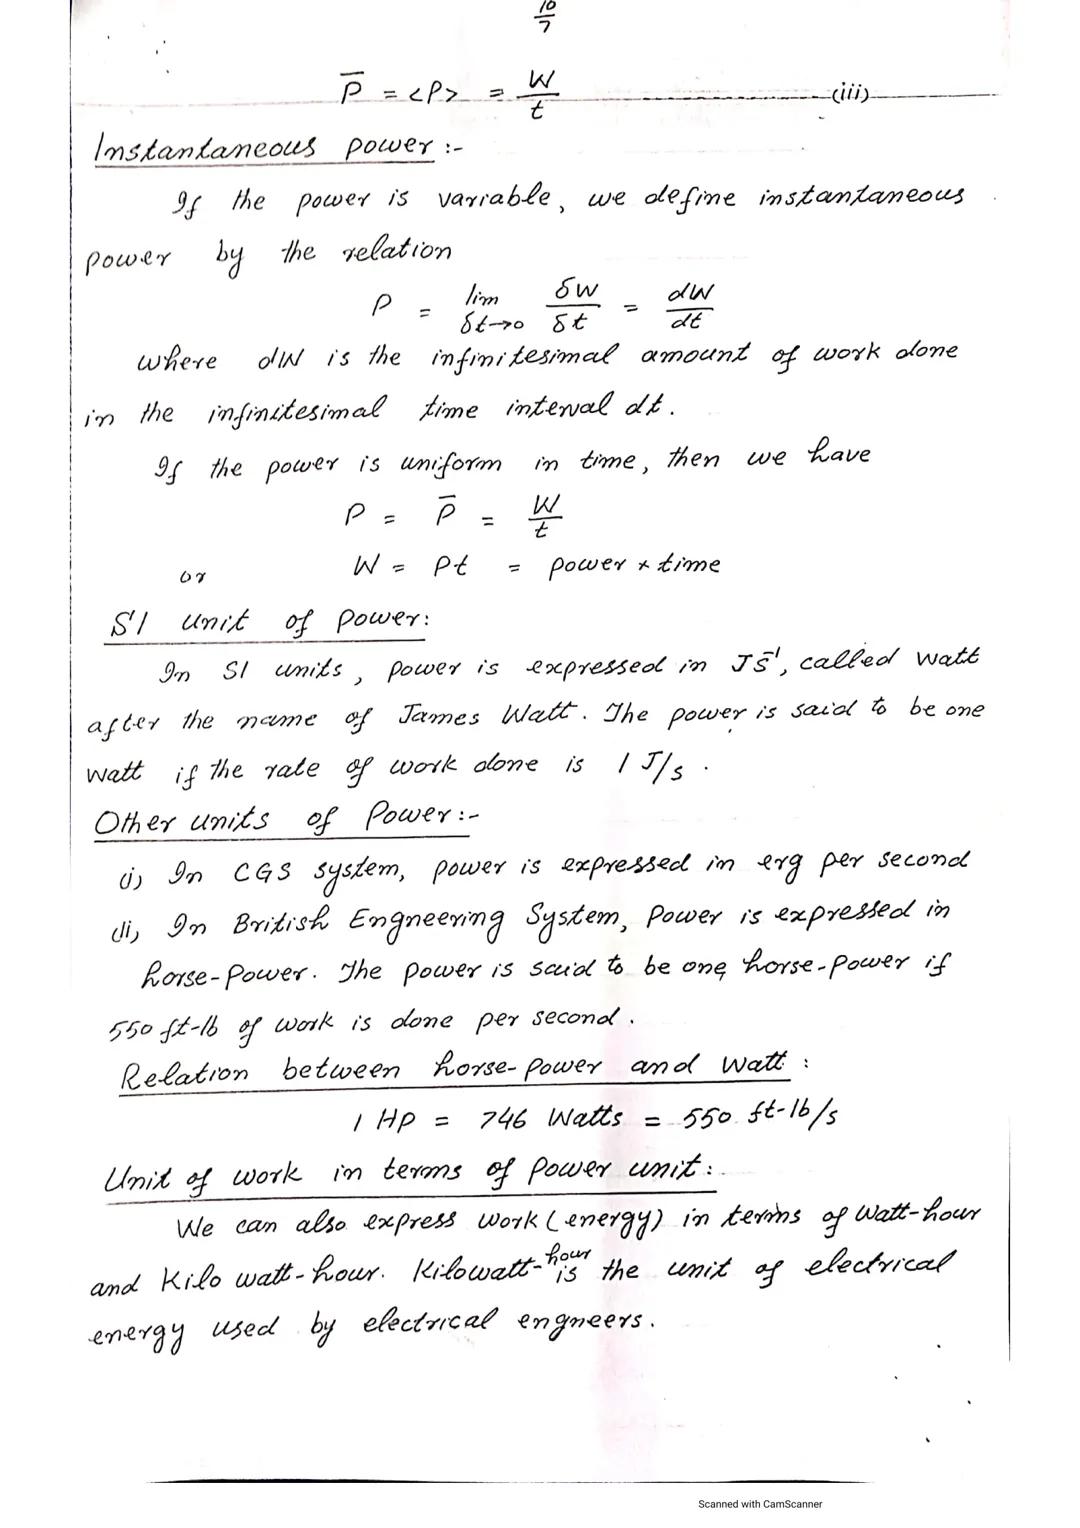 10/7
P̄ = <P> = W/t ------------(iii)
Instantaneous power :-
If the power is variable, we define instantaneous
power by the relation
P = lim δt→0 δW/δt = dW/dt
where dW is the infinitesimal amount of work done
in the infinitesimal time interval dt.
If the power is uniform in time, then we have
P = P̄ = W/t
or W = Pt = power × time
SI unit of power:
In SI units, power is expressed in JS⁻¹, called watt
after the name of James Watt. The power is said to be one
watt if the rate of work done is 1 J/s.
Other units of Power:-
(i) In CGS system, power is expressed in erg per second
(ii) In British Engneering System, Power is expressed in
horse-power. The power is said to be one horse-power if
550 ft-lb of work is done per second.
Relation between horse-power and watt :
1 HP = 746 Watts = 550 ft-lb/s
Unit of work in terms of power unit:
We can also express work (energy) in terms of Watt-hour
and Kilo watt-hour. Kilowatt-hour is the unit of electrical
energy used by electrical engneers.
Scanned with CamScanner